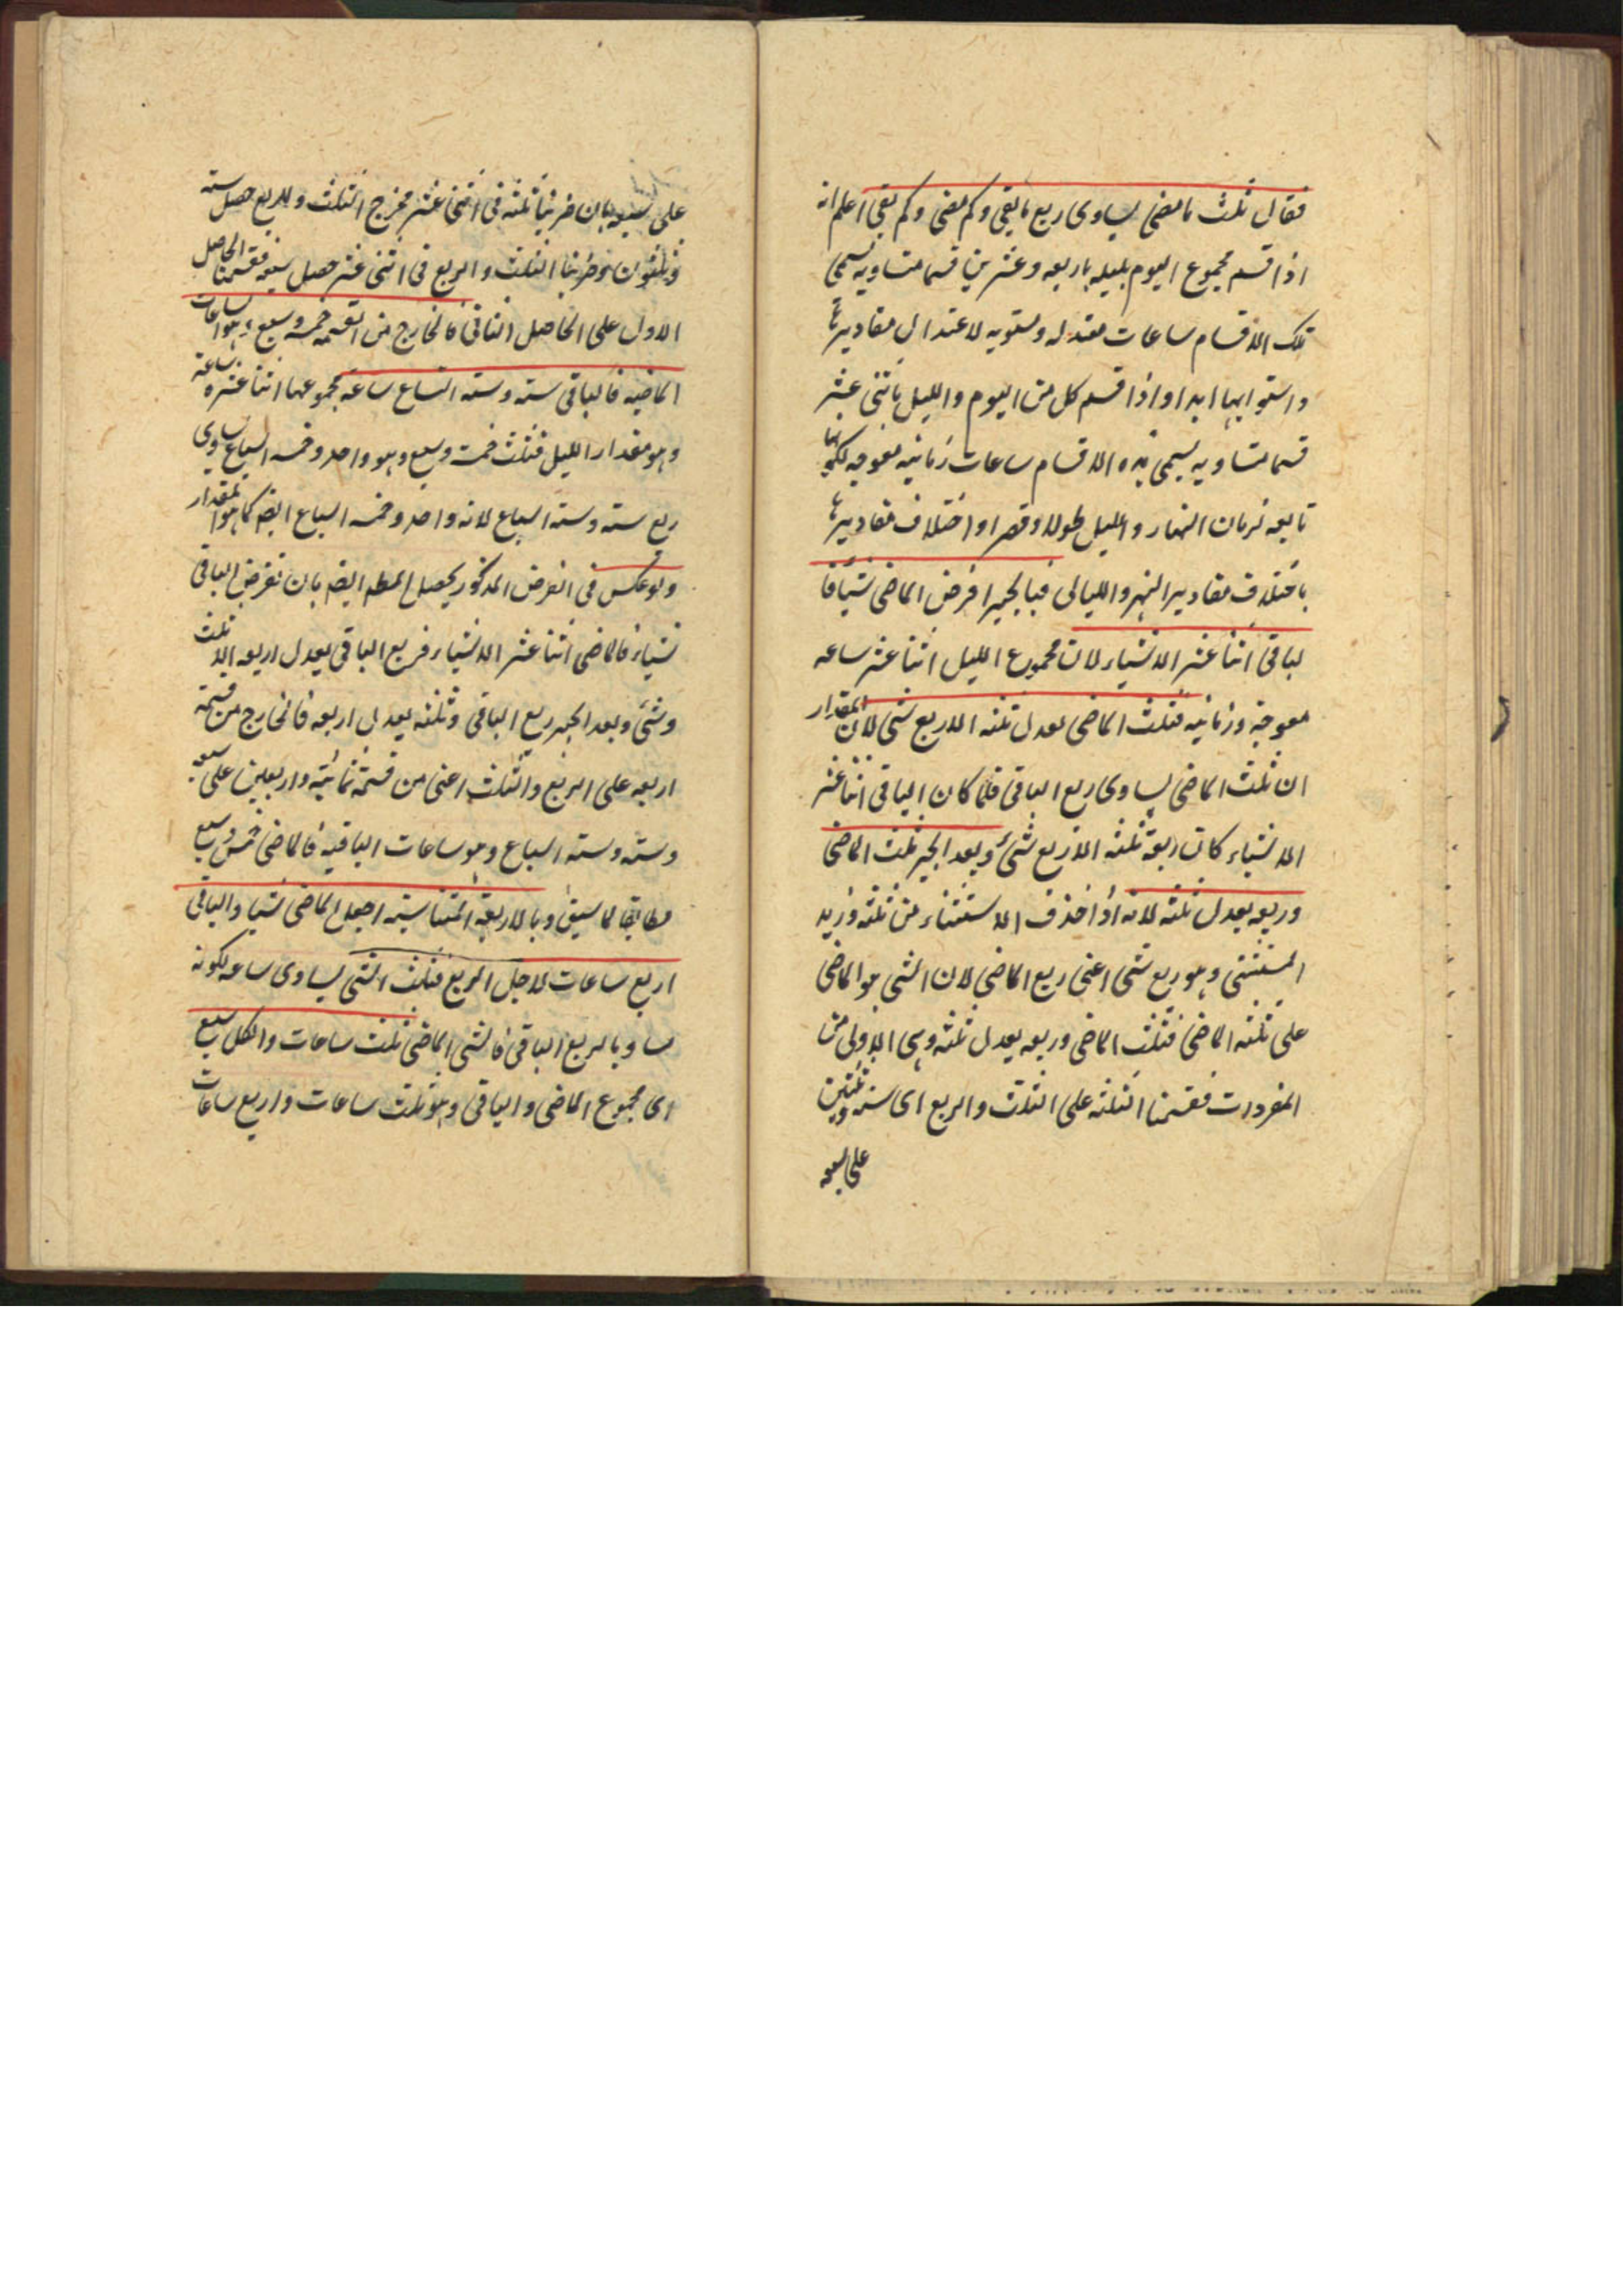 فقال ثلث ما مضى يساوى ربع ما بقى وكم مضى وكم بقى اعلم انه
اذا قسم مجموع اليوم بليله باربعه وعشرين قسما متساويه تسمى
تلك الاقسام ساعات معتدله ومستويه لاعتدال مقاديرها
واستوايها ابدا واذا قسم كل من اليوم والليل باثنى عشر
قسما متساويه يسمى هذه الاقسام ساعات زمانيه معوجه لكونها
تابعه لزمان النهار والليل طولا وقصرا واختلاف مقاديرها
باختلاف مقادير النهر والليالى فبالجبر افرض الماضى شيأ فا
لباقى اثنا عشر الا شياء لان مجموع الليل اثنا عشر ساعه
معوجة وزمانيه فثلث الماضى يعدل ثلثه الا ربع شى لان المقدار
ان ثلث الماضى يساوى ربع الباقى فلما كان الباقى اثنا عشر
الا شياء كان ربعه ثلثه الا ربع شئ وبعد الجبر ثلث الماضى
وربعه يعدل ثلثه لانه اذا حذف الاستثناء من ثلثه وزيد
المستثنى وهو ربع شى اعنى ربع الماضى لان الشى هو الماضى
على ثلثه الماضى فثلث الماضى وربعه يعدل ثلثه وهى الاولى من
المفردات فقسمنا الثلثه على الثلث والربع اى سته وثلثين
على سبعه
على سبعه بان ضربنا ثلثه فى اثنى عشر مخرج الثلث والربع حصل سته
وثلثون وضربنا الثلث والربع فى اثنى عشر حصل سبعه فقسمنا الحاصل
الاول على الحاصل الثانى فالخارج من القسمه خمسه وسبع وهو الساعات
الماضيه فالباقى سته وسته اسباع ساعة مجموعها اثنا عشره ساعة
وهو مقدار الليل فثلث خمسة وسبع وهو واحد وخمسه اسباع يساوى
ربع سته وسته اسباع لانه واحد وخمسه اسباع ايضا كما هو المقدار
ولو عكس فى الفرض المذكور يحصل المطم ايضا بان نفرض الباقى
شياء فالماضى اثنا عشر الا شياء فربع الباقى يعدل اربعه الا ثلث
وشئ وبعد الجبر ربع الباقى وثلثه يعدل اربعه فالخارج من قسمة
اربعه على الربع والثلث اعنى من قسمة ثمانية واربعين على سبعه
وسته وسته اسباع وهو ساعات الباقيه فالماضى خمس وسبع
مطابقا لما سبق وبالاربعة المتناسبته اجعل الماضى شيا والباقى
اربع ساعات لاجل الربع فثلث الشى يساوى ساعه لكونه
مساويا لربع الباقى فالشى الماضى ثلث ساعات والكل سبع
اى مجموع الماضى والباقى وهو ثلث ساعات واربع ساعات